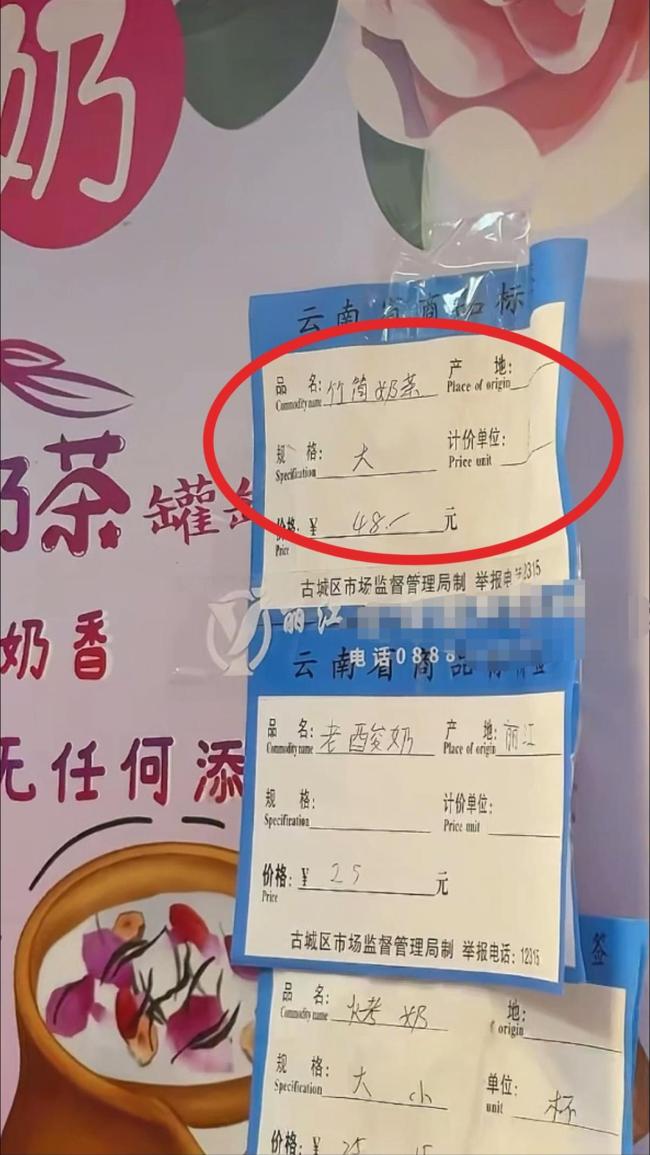 奶
云南省商品标
品 名: 竹筒奶茶 产 地:
Commodity name Place of origin
规 格: 大 计价单位:
Specification Price unit
价格: ¥ 48.- 元
Price
古城区市场监督管理局制 举报电话12315
奶茶 罐
奶香
无任何添
丽江
电话088
云南省商品标价签
品 名: 老酸奶 产 地: 丽江
Commodity name Place of origin
规 格: 计价单位:
Specification Price unit
价格: ¥ 25 元
Price
古城区市场监督管理局制 举报电话: 12315
签
品 名: 烤奶 地:
Commodity name origin
规 格: 大 小 单位: 杯
Specification unit
价格: ¥ 25 15